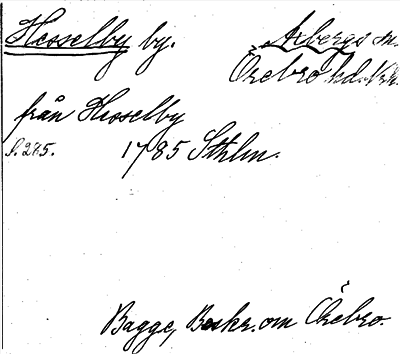 Hesselby by. Axbergs sn.
Örebro hd.
från Hesselby
S. 275. 1785 Sthlm.
Bagge, Beskr. om Örebro.